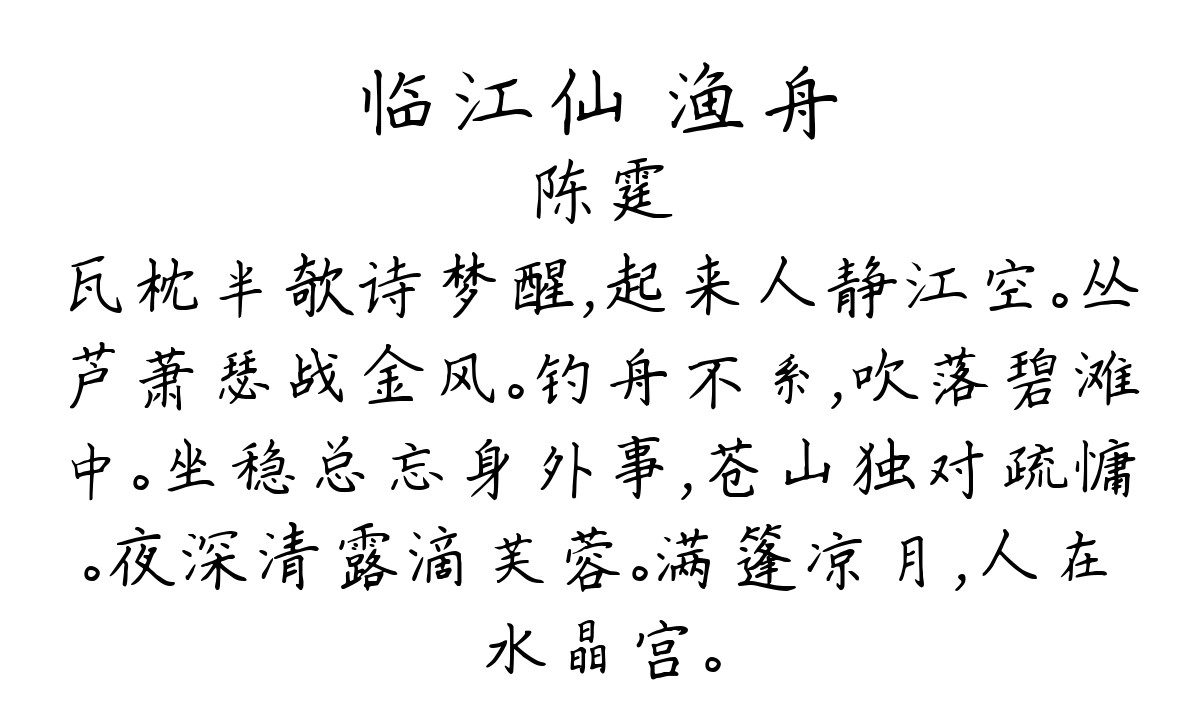 临江仙 渔舟
陈霆
瓦枕半欹诗梦醒,起来人静江空。丛
芦萧瑟战金风。钓舟不系,吹落碧滩
中。坐稳总忘身外事,苍山独对疏慵
。夜深清露滴芙蓉。满篷凉月,人在
水晶宫。